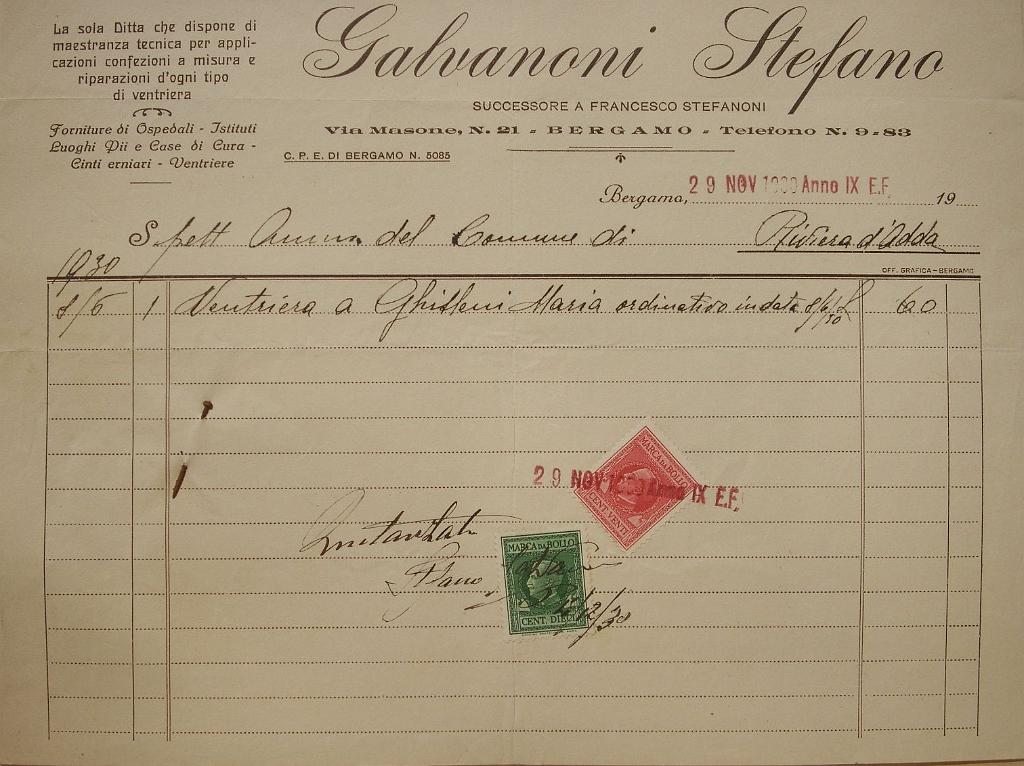 La sola Ditta che dispone di
maestranza tecnica per appli-
cazioni confezioni a misura e
riparazioni d'ogni tipo
di ventriera
Forniture di Ospedali - Istituti
Luoghi Pii e Case di Cura -
Cinti erniari - Ventriere
Galvanoni Stefano
SUCCESSORE A FRANCESCO STEFANONI
Via Masone, N. 21 - BERGAMO - Telefono N. 9-83
C. P. E. DI BERGAMO N. 5085
Bergamo, 29 NOV 1930 Anno IX E.F. 19
Spett Amm del Comune di Riviera d'Adda
1930
OFF. GRAFICA - BERGAMO
8/6 1 Ventriera a Ghisleni Maria ordinativo in data 8/6/30 L 60
29 NOV 1930 Anno IX E.F.
MARCA DA BOLLO
CENT. VENTI
Quietanzata
MARCA DA BOLLO
CENT. DIECI
12/30